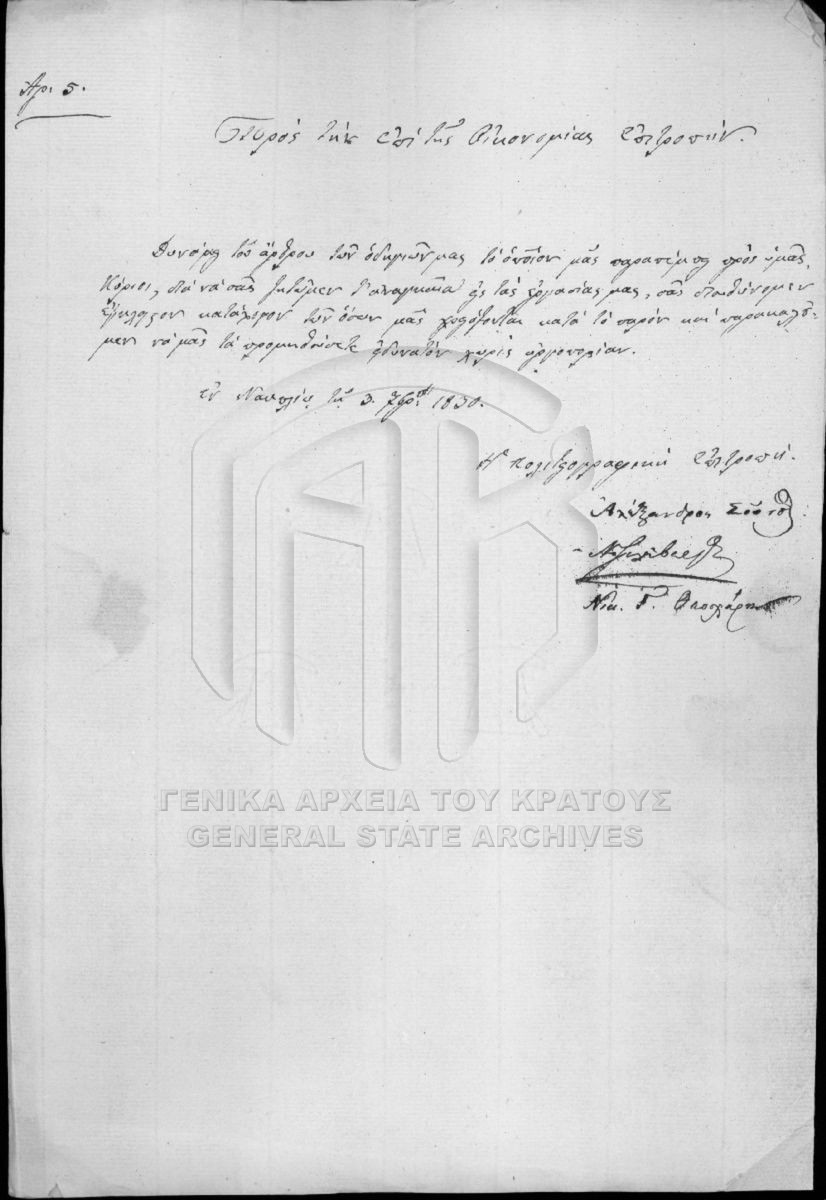 Αρ. 5.
Πρὸς τὴν ἐπὶ τῆς Οἰκονομίας Ἐπιτροπήν.
Δυνάμει τοῦ ἄρθρου τῶν ὁδηγιῶν μας τὸ ὁποῖον μᾶς παραπέμπει πρὸς ὑμᾶς,
Κύριοι, διὰ νὰ σᾶς ζητῶμεν τ' ἀναγκαῖα εἰς τὰς ἐργασίας μας, σᾶς διευθύνομεν
ἔγκλειστον κατάλογον τῶν ὅσων μᾶς χρειάζονται κατὰ τὸ παρὸν καὶ παρακαλοῦ-
μεν νὰ μᾶς τὰ προμηθεύσετε εἰ δυνατὸν χωρὶς ἀργοπορίαν.
ἐν Ναυπλίῳ τῇ 3. 7βρίου 1830.
Ἡ πολιτογραφικὴ Ἐπιτροπή.
Ἀλέξανδρος Σοῦτσος
Νικ. Γ.
ΓΕΝΙΚΑ ΑΡΧΕΙΑ ΤΟΥ ΚΡΑΤΟΥΣ
GENERAL STATE ARCHIVES